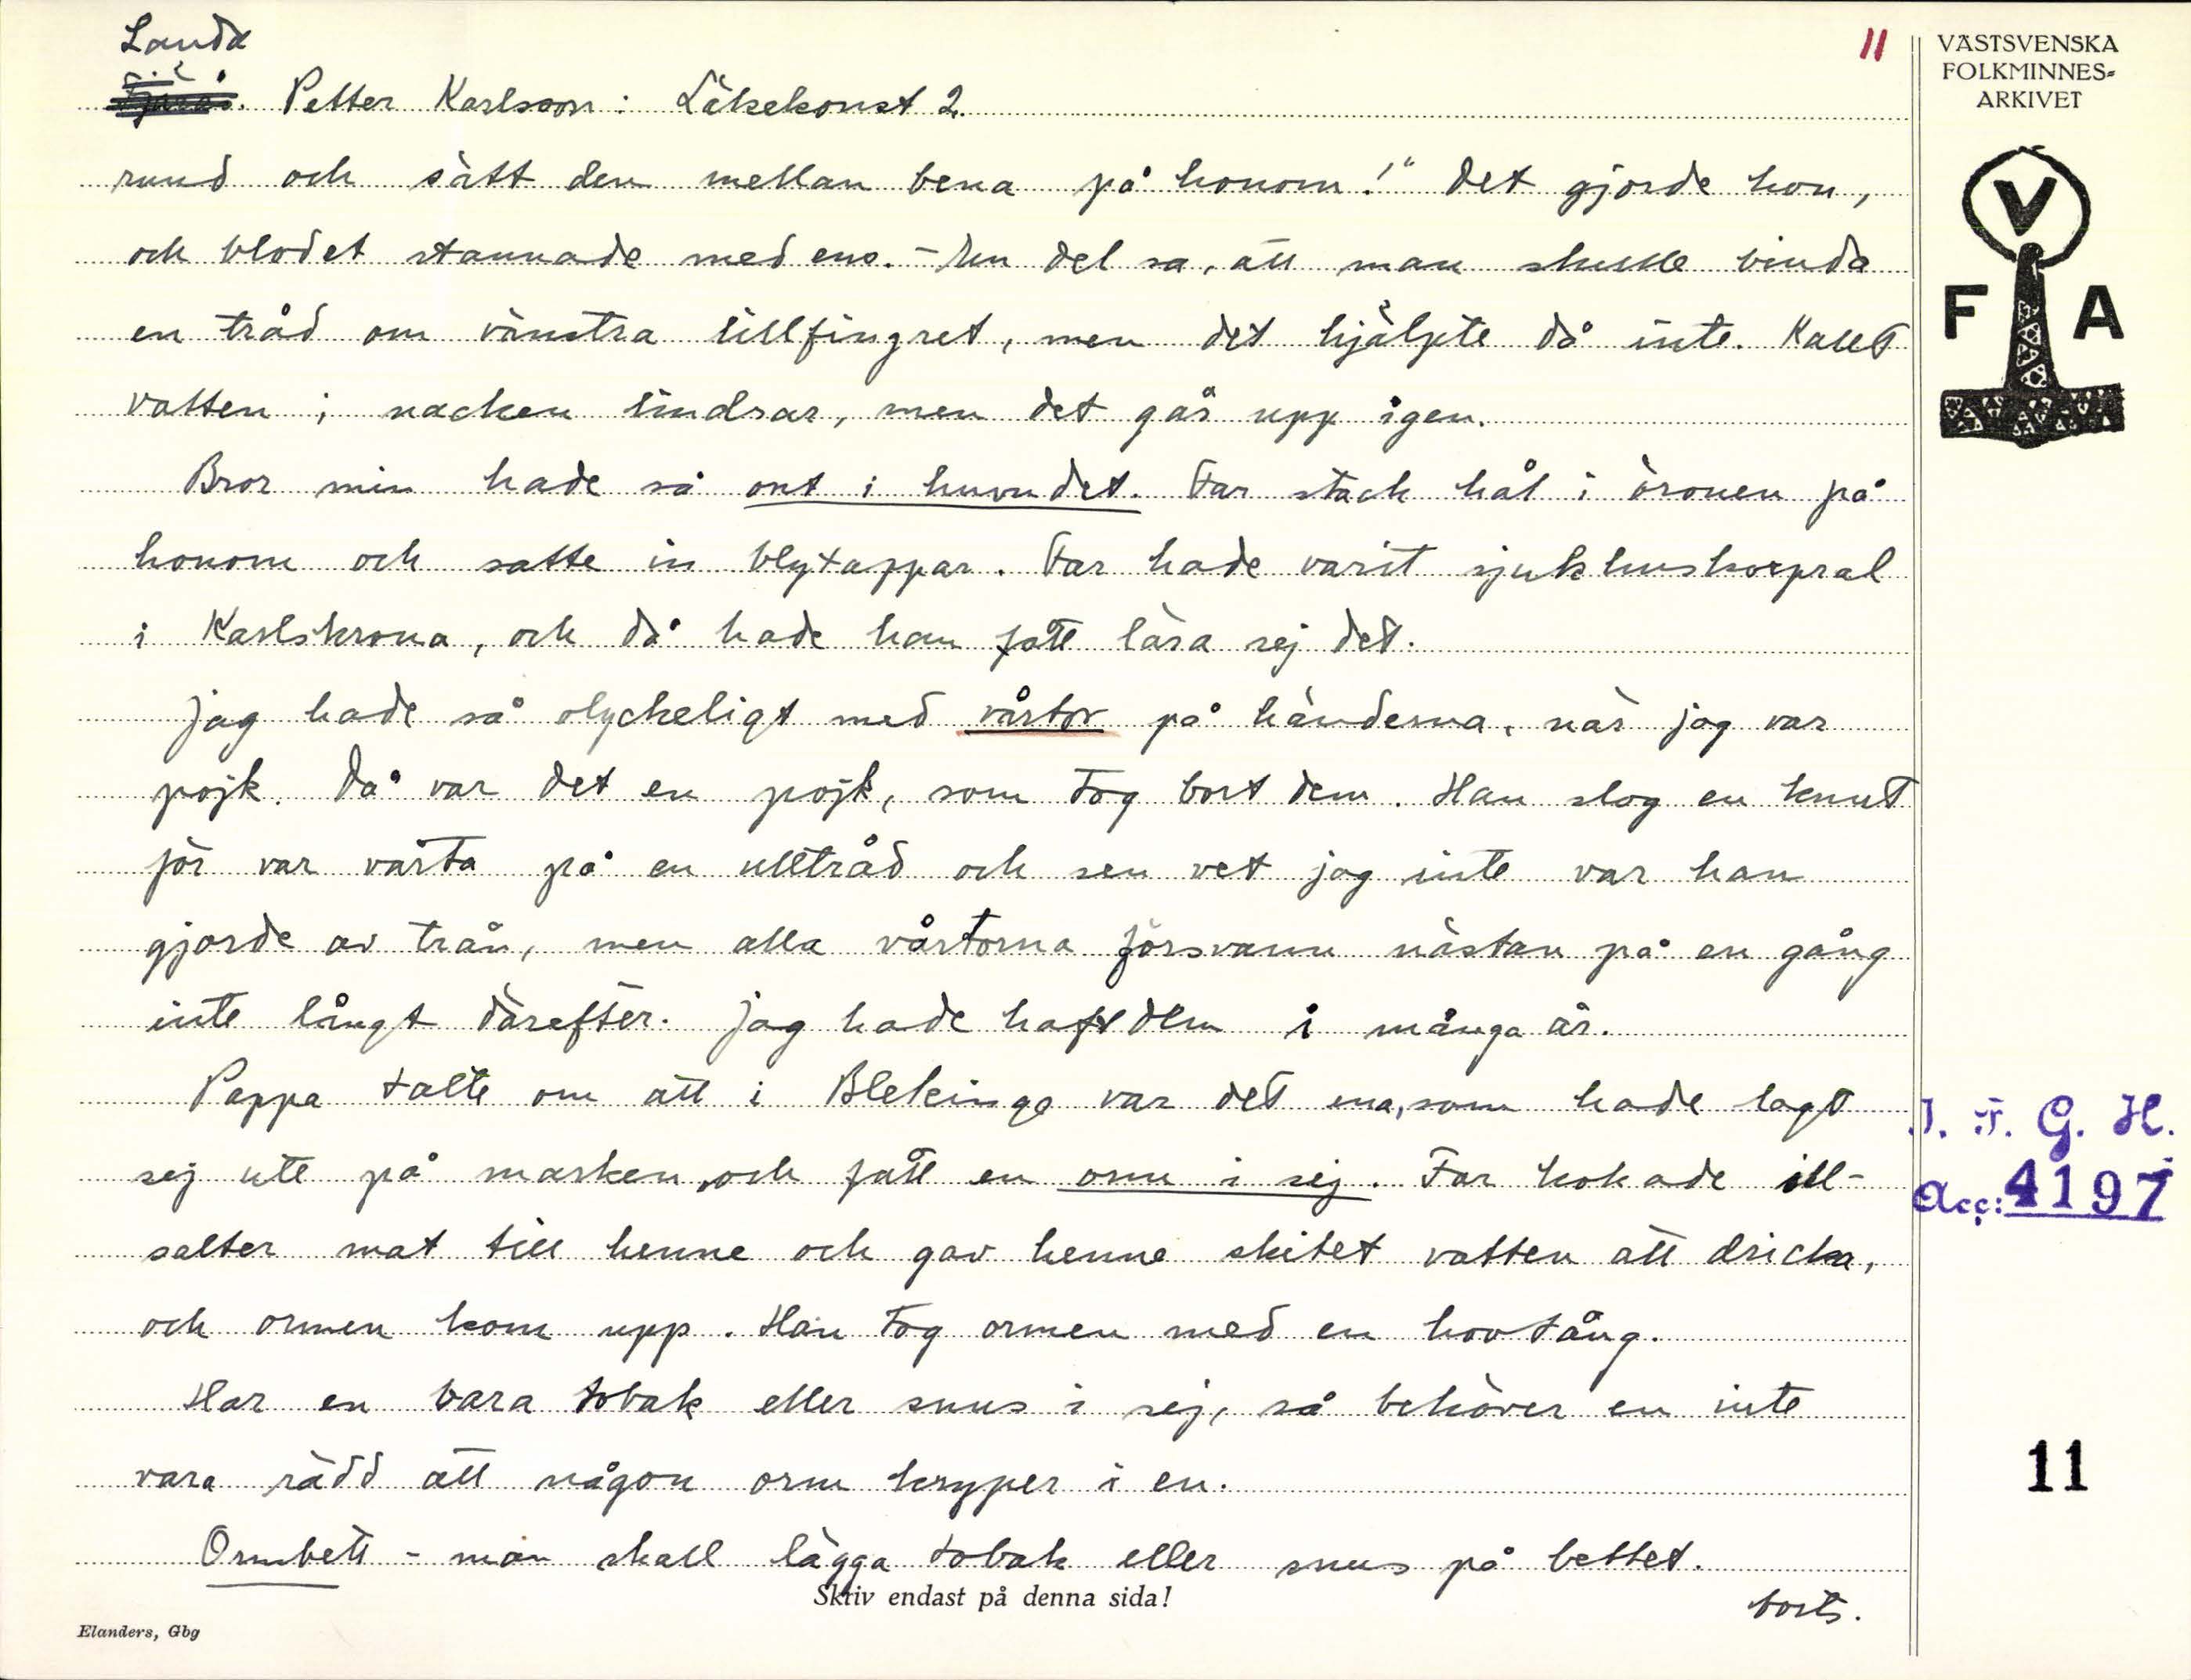 Landa
11
Fjärås. Petter Karlsson: Läkekonst 2.
rund och sätt den mellan bena på honom!" Det gjorde hon,
och blodet stannade med ens. - En del sa, att man skulle binda
en tråd om vänstra lillfingret, men det hjälpte då inte. Kallt
vatten i nacken lindrar, men det går upp igen.
Bror min hade så ont i huvudet. Far stack hål i öronen på
honom och satte in blytappar. Far hade varit sjukhuskorpral
i Karlskrona, och då hade han fått lära sej det.
Jag hade så olyckeligt med vårtor på händerna, när jag var
pojk. Då var det en pojk, som tog bort dem. Han slog en knut
för var vårta på en ulltråd och sen vet jag inte var han
gjorde av trån, men alla vårtorna försvann nästan på en gång
inte långt därefter. Jag hade haft dem i många år.
Pappa talte om att i Blekinge var det ena, som hade lagt
sej ute på marken, och fått en orm i sej. Far kokade ill-
salter mat till henne och gav henne skitet vatten att dricka,
och ormen kom upp. Han tog ormen med en hovtång.
Har en bara tobak eller snus i sej, så behöver en inte
vara rädd att någon orm kryper i en.
Ormbett - man skall lägga tobak eller snus på bettet.
Skriv endast på denna sida!
forts.
Elanders, Gbg
VÄSTSVENSKA
FOLKMINNES=
ARKIVET
V
F A
I. F. G. H.
Acc: 4197
11